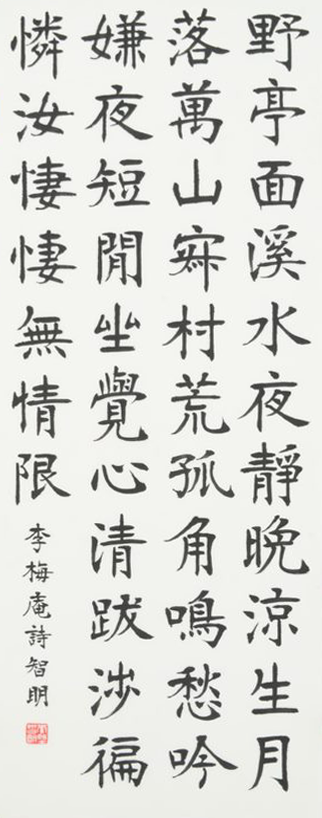 野亭面溪水夜靜晚涼生月
落萬山寂村荒孤角鳴愁吟
嫌夜短閒坐覺心清跋涉徧
憐汝悽悽無情限
李梅庵詩智明